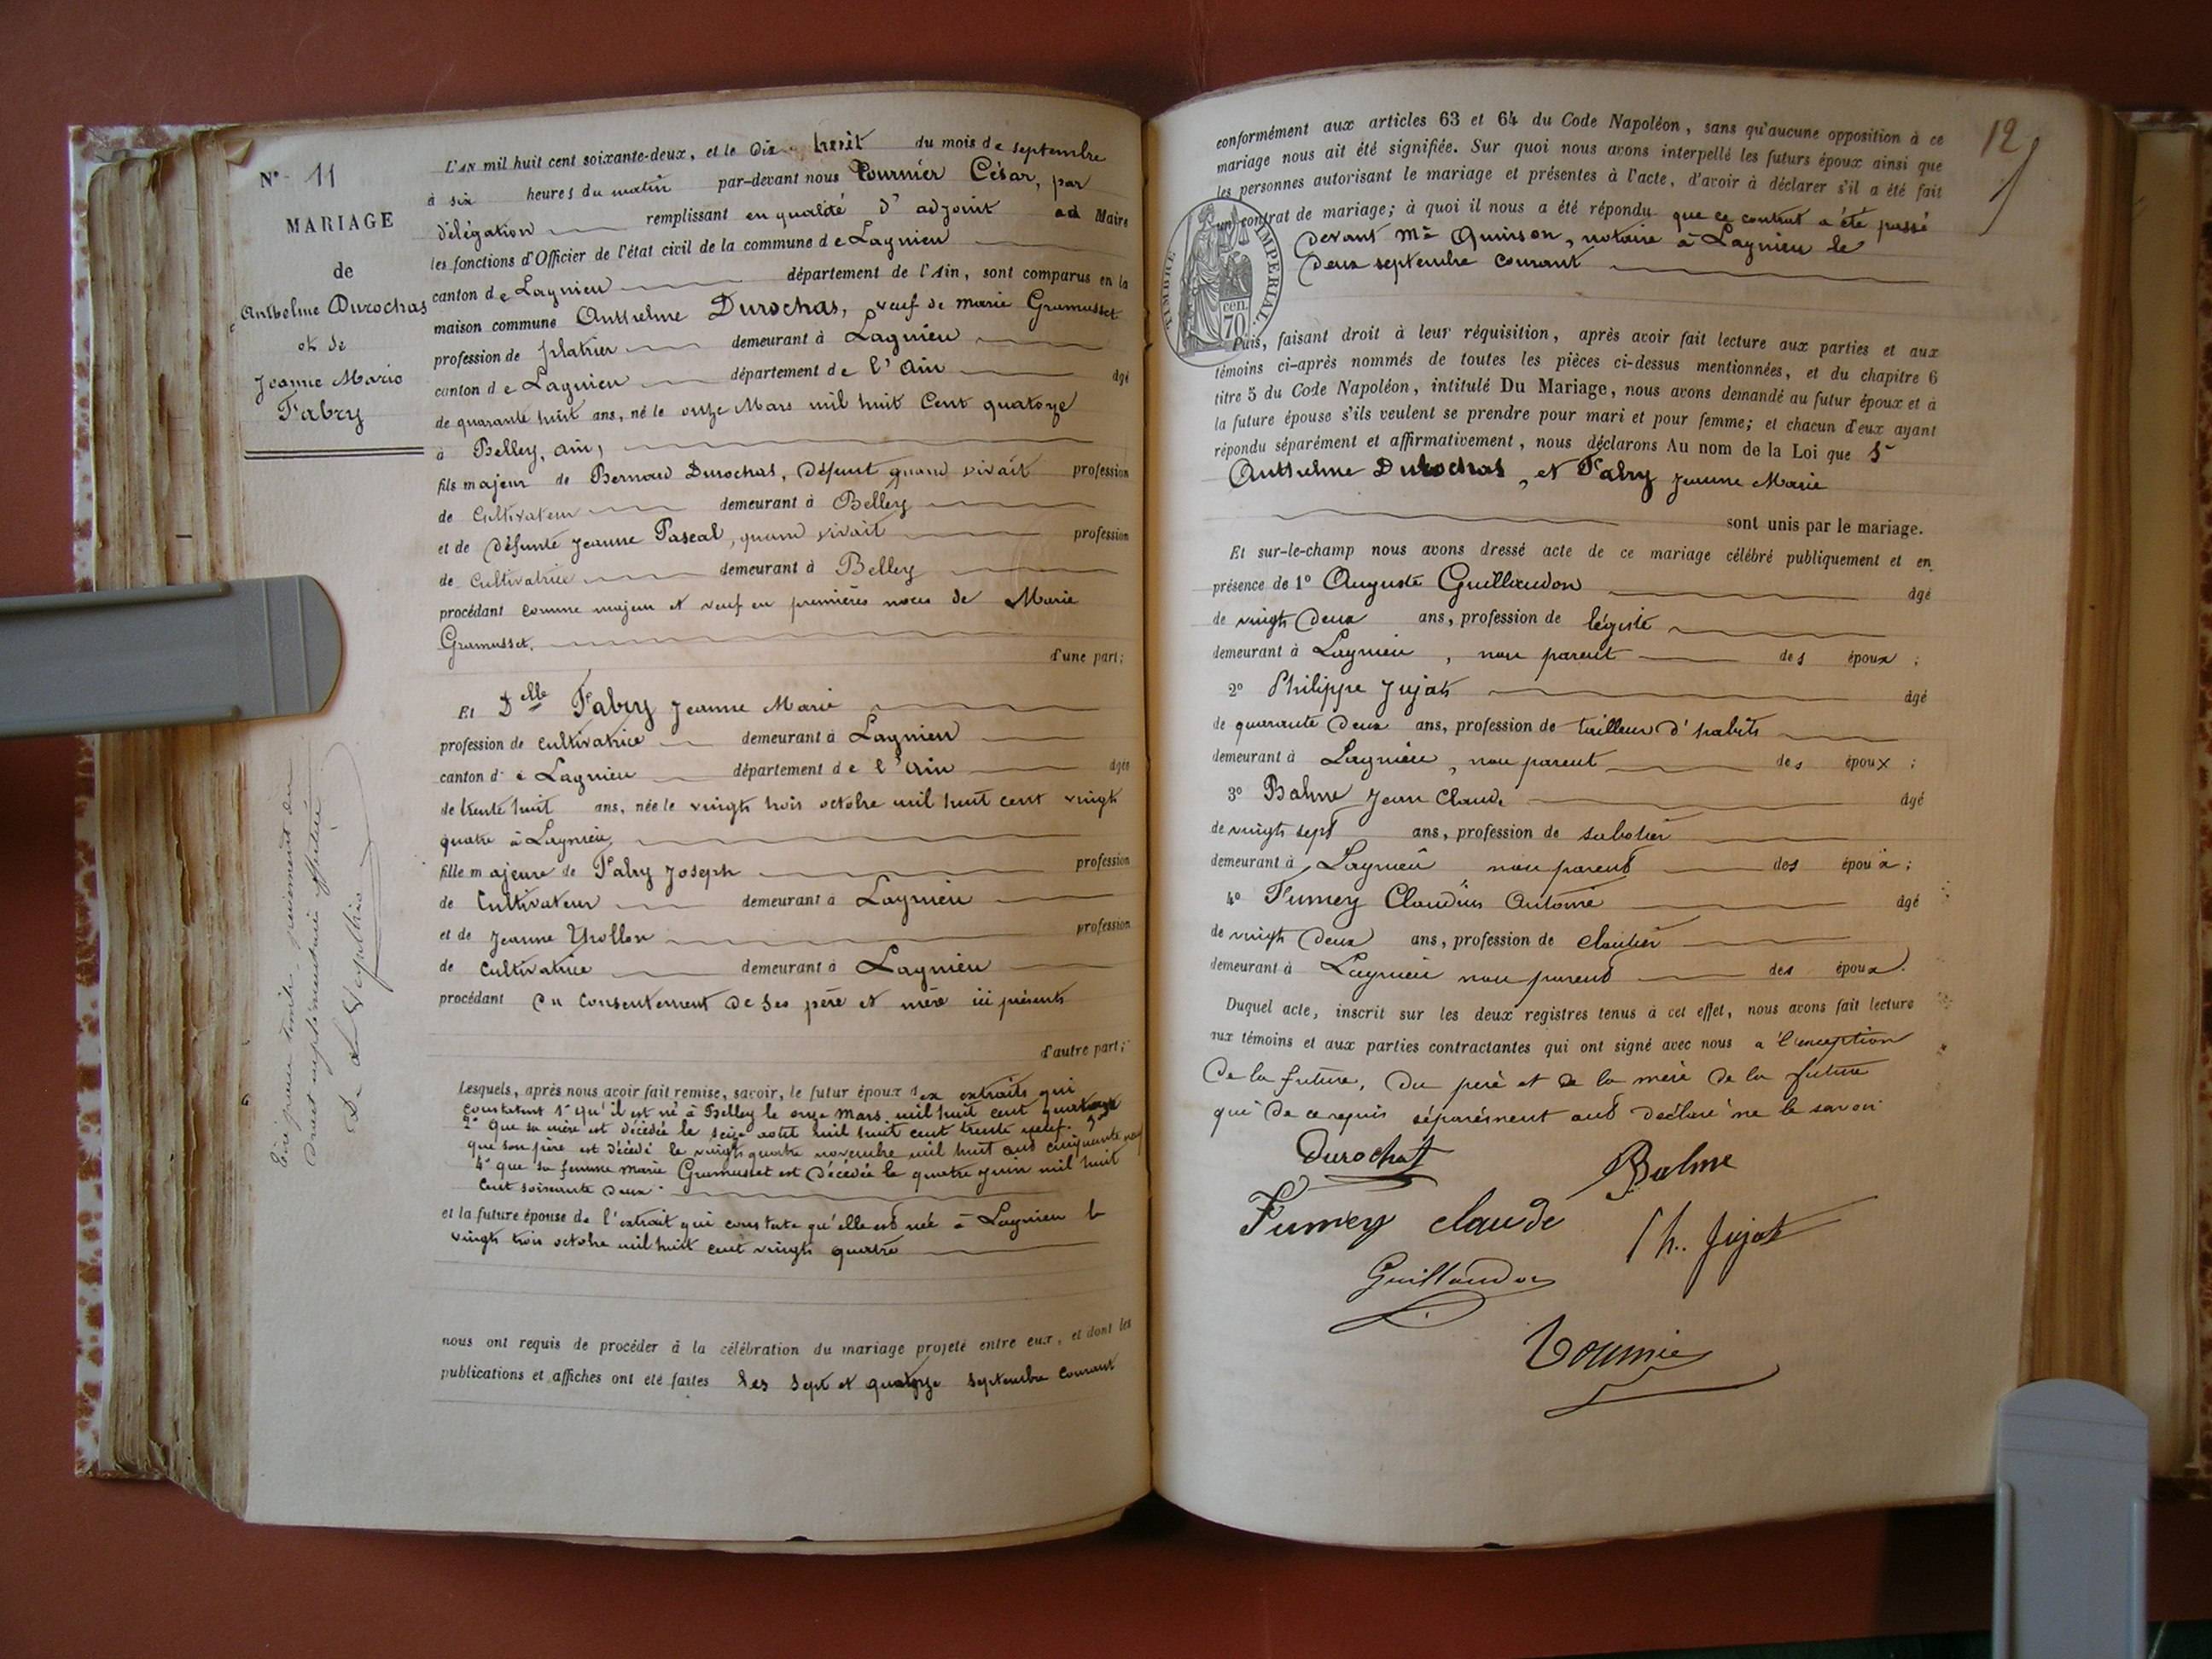 N° 11
MARIAGE
de
Anthelme Durochas
et de
Jeanne Marie
Fabry
L'AN mil huit cent soixante-deux, et le Dix huit du mois de septembre
à six heures du matin par-devant nous Tournier César, par
délégation remplissant en qualité d'adjoint au Maire
les fonctions d'Officier de l'état civil de la commune de Lagnieu
canton de Lagnieu département de l'Ain, sont comparus en la
maison commune Anthelme Durochas, veuf de marie Gramusset
profession de platrier demeurant à Lagnieu
canton de Lagnieu département de l'Ain âgé
de quarante huit ans, né le onze Mars mil huit Cent quatorze
à Belley, ain,
fils majeur de Bernard Durochas, défunt quand vivait profession
de Cultivateur demeurant à Belley
et de défunte Jeanne Pascal, quand vivait profession
de Cultivatrice demeurant à Belley
procédant comme majeur et veuf en premières noces de Marie
Gramusset.
d'une part;
Et Delle Fabry Jeanne Marie
profession de cultivatrice demeurant à Lagnieu
canton de Lagnieu département de l'Ain âgée
de trente huit ans, née le vingt trois octobre mil huit cent vingt
quatre à Lagnieu
fille majeure de Fabry Joseph profession
de Cultivateur demeurant à Lagnieu
et de Jeanne Thollon profession
de Cultivatrice demeurant à Lagnieu
procédant du consentement de ses père et mère ici présents
d'autre part;
Lesquels, après nous avoir fait remise, savoir, le futur époux des extraits qui
constatent 1° qu'il est né à Belley le onze mars mil huit cent quatorze
2° que sa mère est décédée le seize aout mil huit cent trente neuf. 3°
que son père est décédé le vingt quatre novembre mil huit cent cinquante neuf
4° que sa femme marie Gramusset est décédée le quatre juin mil huit
cent soixante deux
et la future épouse de l'extrait qui constate qu'elle est née à Lagnieu le
vingt trois octobre mil huit cent vingt quatre
nous ont requis de procéder à la célébration du mariage projeté entre eux, et dont les
publications et affiches ont été faites les sept et quatorze septembre courant
12
conformément aux articles 63 et 64 du Code Napoléon, sans qu'aucune opposition à ce
mariage nous ait été signifiée. Sur quoi nous avons interpellé les futurs époux ainsi que
les personnes autorisant le mariage et présentes à l'acte, d'avoir à déclarer s'il a été fait
un contrat de mariage; à quoi il nous a été répondu que ce contrat a été passé
devant Me Quinson, notaire à Lagnieu le
deux septembre courant
TIMBRE IMPERIAL
70 cen.
Puis, faisant droit à leur réquisition, après avoir fait lecture aux parties et aux
témoins ci-après nommés de toutes les pièces ci-dessus mentionnées, et du chapitre 6
titre 5 du Code Napoléon, intitulé Du Mariage, nous avons demandé au futur époux et à
la future épouse s'ils veulent se prendre pour mari et pour femme; et chacun d'eux ayant
répondu séparément et affirmativement, nous déclarons Au nom de la Loi que Sr
Anthelme Durochas, et Fabry Jeanne Marie
sont unis par le mariage.
Et sur-le-champ nous avons dressé acte de ce mariage célébré publiquement et en
présence de 1° Auguste Guillaudon âgé
de vingt deux ans, profession de légiste
demeurant à Lagnieu, non parent des époux;
2° Philippe Jujat âgé
de quarante deux ans, profession de tailleur d'habits
demeurant à Lagnieu, non parent des époux;
3° Balme Jean Claude âgé
de vingt sept ans, profession de sabotier
demeurant à Lagnieu non parent des époux;
4° Fumey Claudius Antoine âgé
de vingt deux ans, profession de cloutier
demeurant à Lagnieu non parent des époux.
Duquel acte, inscrit sur les deux registres tenus à cet effet, nous avons fait lecture
aux témoins et aux parties contractantes qui ont signé avec nous a l'exception
de la future, du père et de la mère de la future
qui de ce requis séparément ont déclaré ne le savoir
Durochat
Balme
Fumey claude
Ph. Jujat
Guillaudon
Tournier